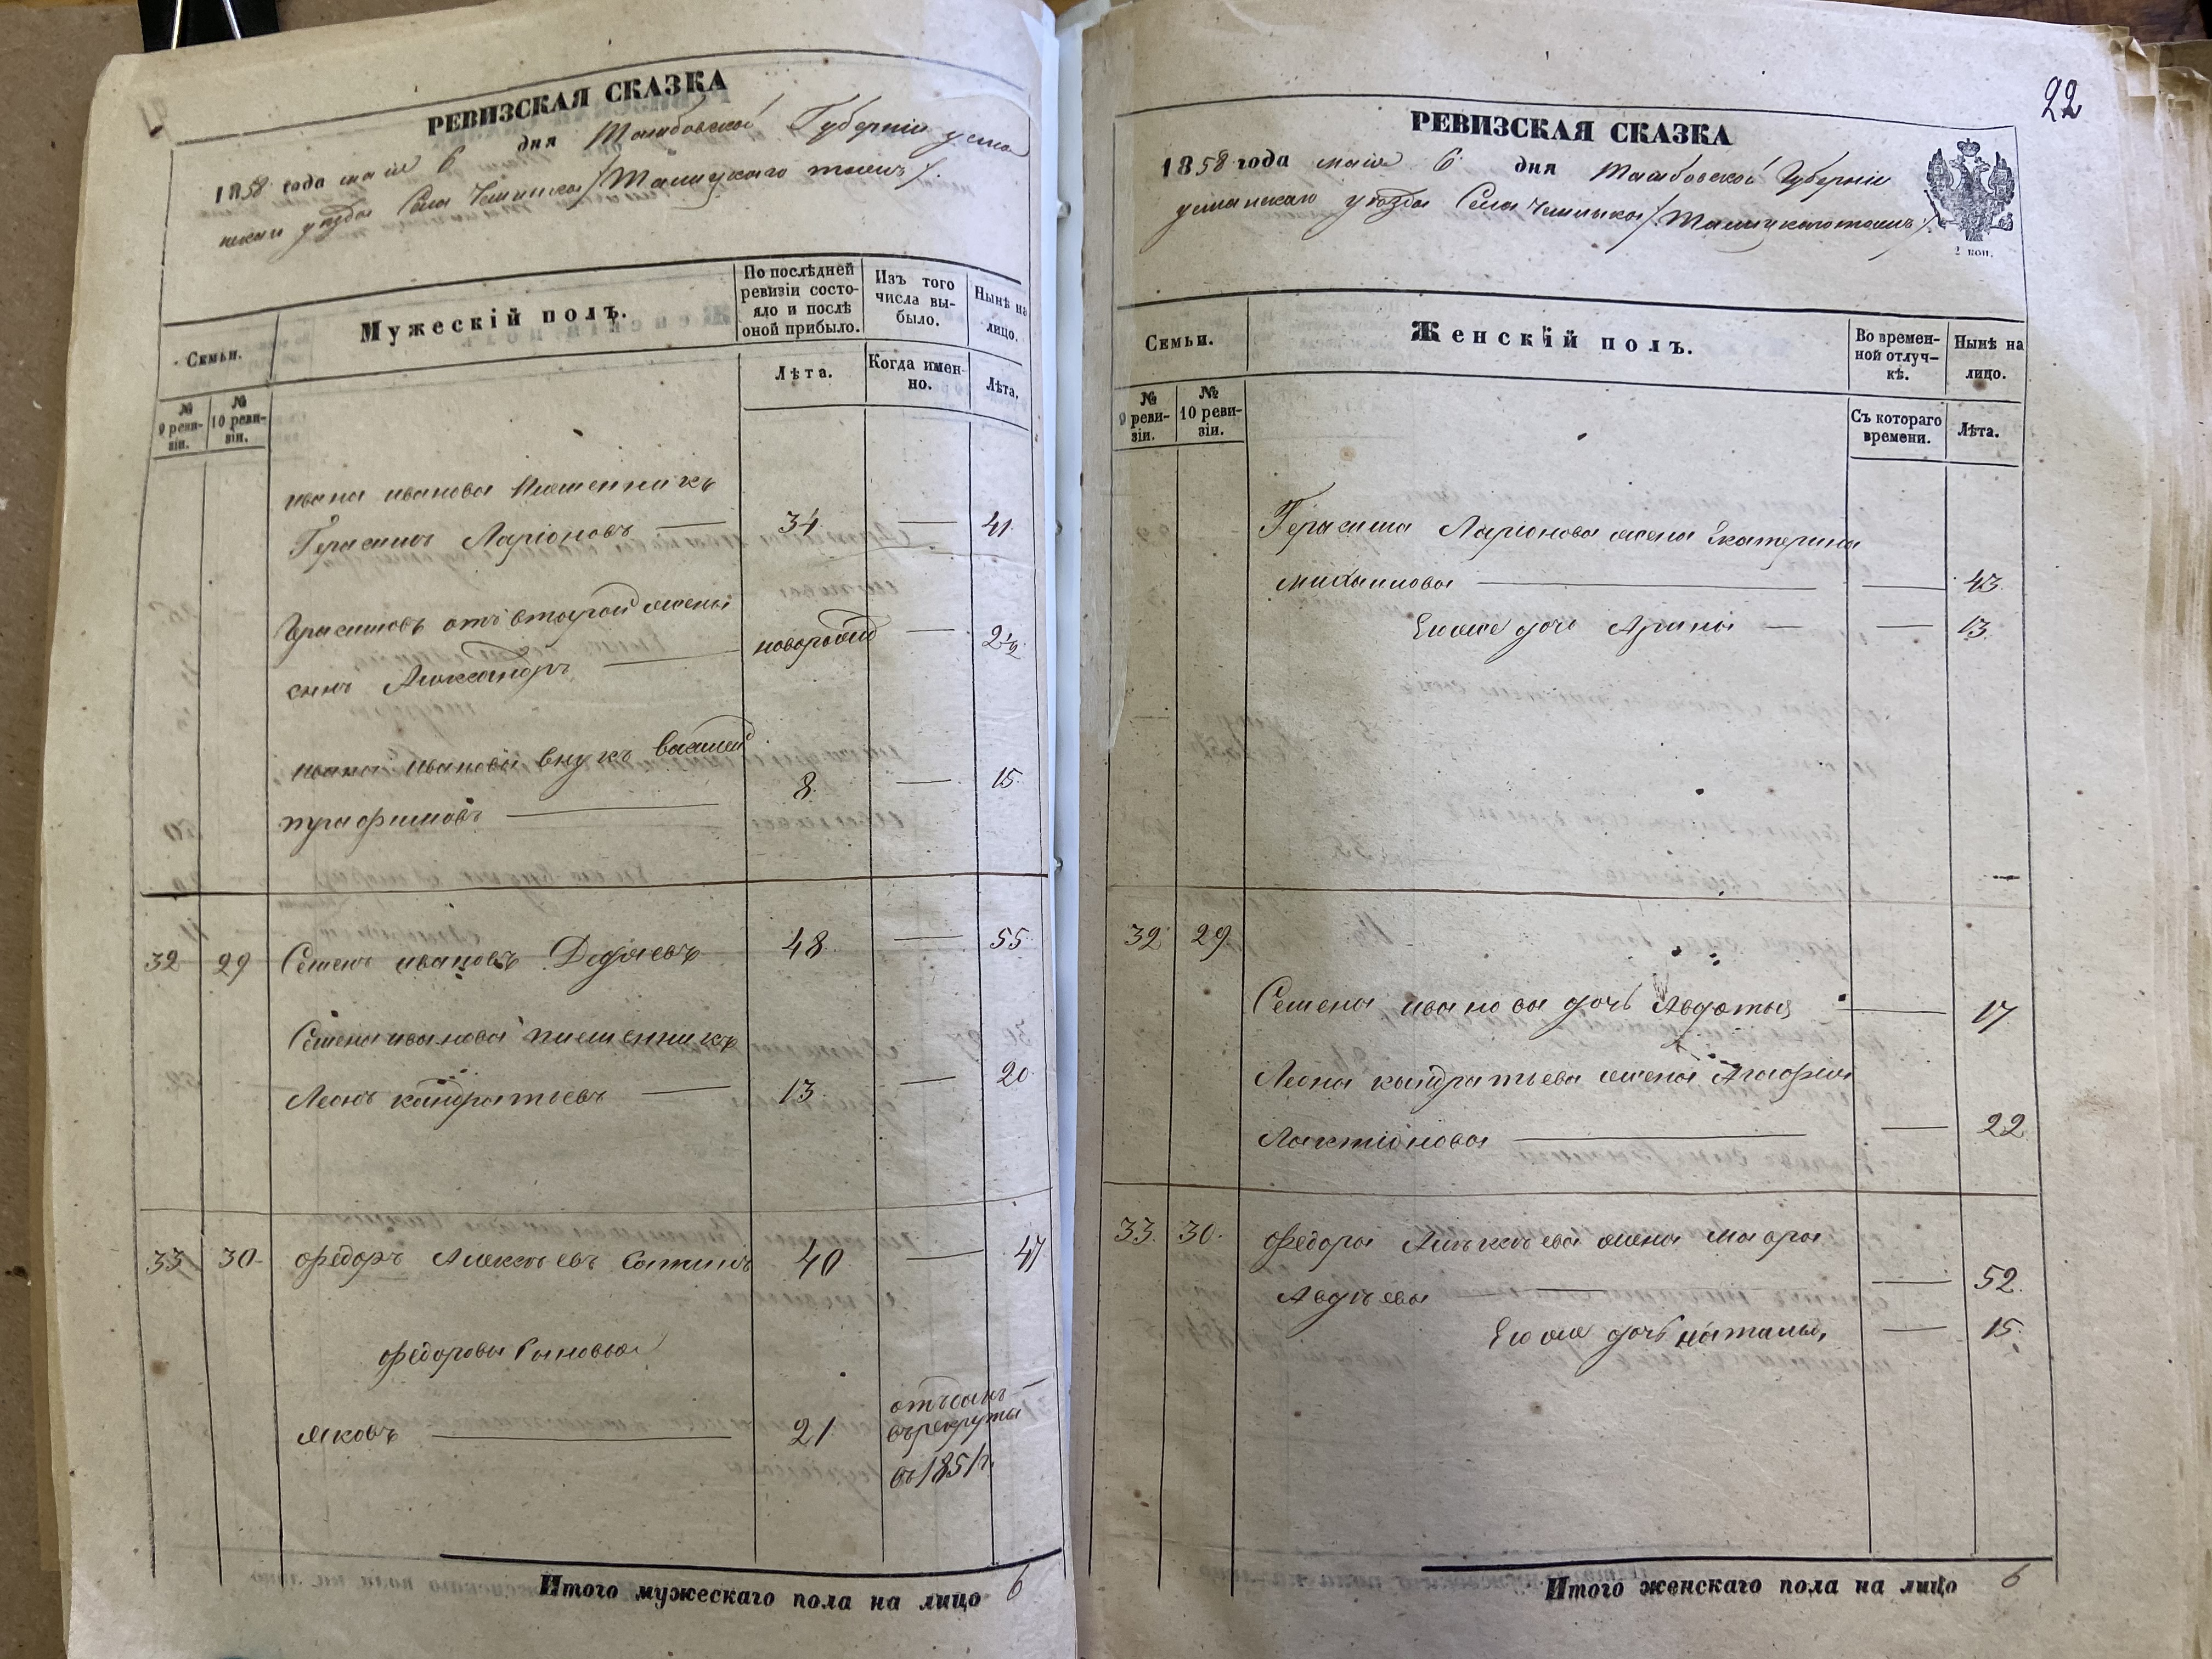 РЕВИЗСКАЯ СКАЗКА
1858 года маія 6 дня Тамбовской Губерніи усма
нскаго уѣзда Села Чемлыка /Талицкаго тожъ/.
Семьи.
Мужескій полъ.
По послѣдней ревизіи состояло и послѣ оной прибыло.
Изъ того числа выбыло.
Нынѣ на лицо.
Лѣта.
Когда именно.
Лѣта.
№ 9 ревизіи.
№ 10 ревизіи.
ивана иванова племенникъ
Герасимъ Ларіоновъ — 34 — 41
Герасимовъ отъ второй жены
сынъ Александръ — новорожд — 2½
ивана иванова внукъ василей
трофимовъ — 8 — 15
32 29 Семенъ ивановъ 48 — 55
Семена иванова племенникъ
Леонъ кандратьевъ — 13 — 20
33 30 федоръ Алексѣевъ 40 — 47
федоровы сыновья
яковъ — 21 отъданъ —
въ рекруты
въ 1851 г.
Итого мужескаго пола на лицо 6
22
РЕВИЗСКАЯ СКАЗКА
1858 года маія 6 дня Тамбовской Губерніи
усманскаго уѣзда Села Чемлыка /Талицкаго тожъ/
2 коп.
Семьи.
Женскій полъ.
Во временной отлучкѣ.
Нынѣ на лицо.
№ 9 ревизіи.
№ 10 ревизіи.
Съ котораго времени.
Лѣта.
Герасима Ларіонова жена Екатерина
михайлова — — 43
Ею же дочь Арина — — 13
32 29
Семена иванова дочь Авдотья — 17
Леона кандратьева жена Агафья
Лактіонова — — 22
33 30 федора Алексѣева жена мавра
Авдѣева — — 52
Ею же дочь наталья, — 15
Итого женскаго пола на лицо 6